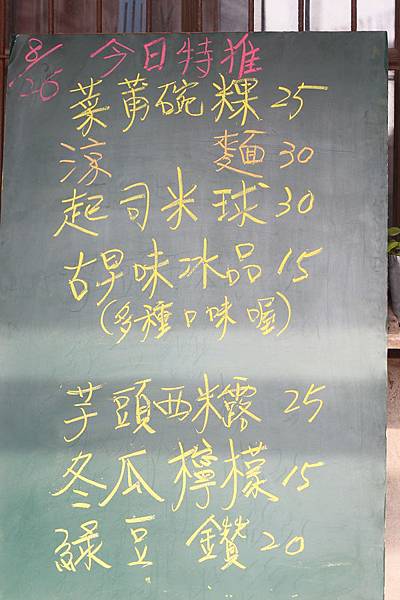 8/26 今日特推
菜莆碗粿 25
涼 麵 30
起司米球 30
古早味冰品 15
(多種口味喔)
芋頭西米露 25
冬瓜檸檬 15
綠豆 鑽 20